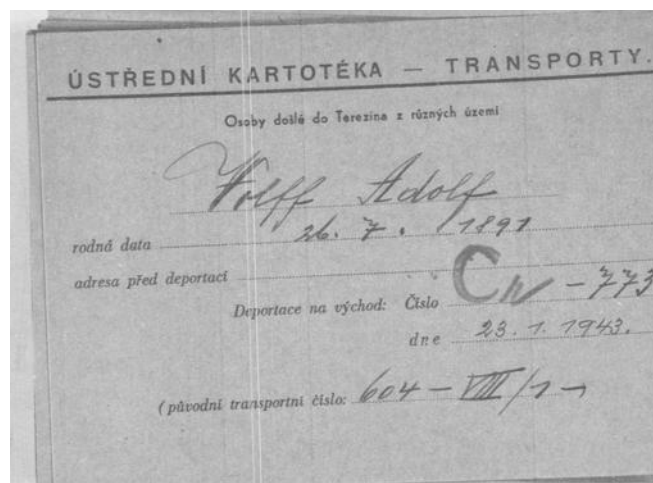 ÚSTŘEDNÍ KARTOTÉKA — TRANSPORTY.
Osoby došlé do Terezína z různých území
Wolff Adolf
rodná data 26. 7. 1891
adresa před deportací
Deportace na východ: Číslo Cr - 773
dne 23. 1. 1943.
(původní transportní číslo: 604 - VIII/1 -